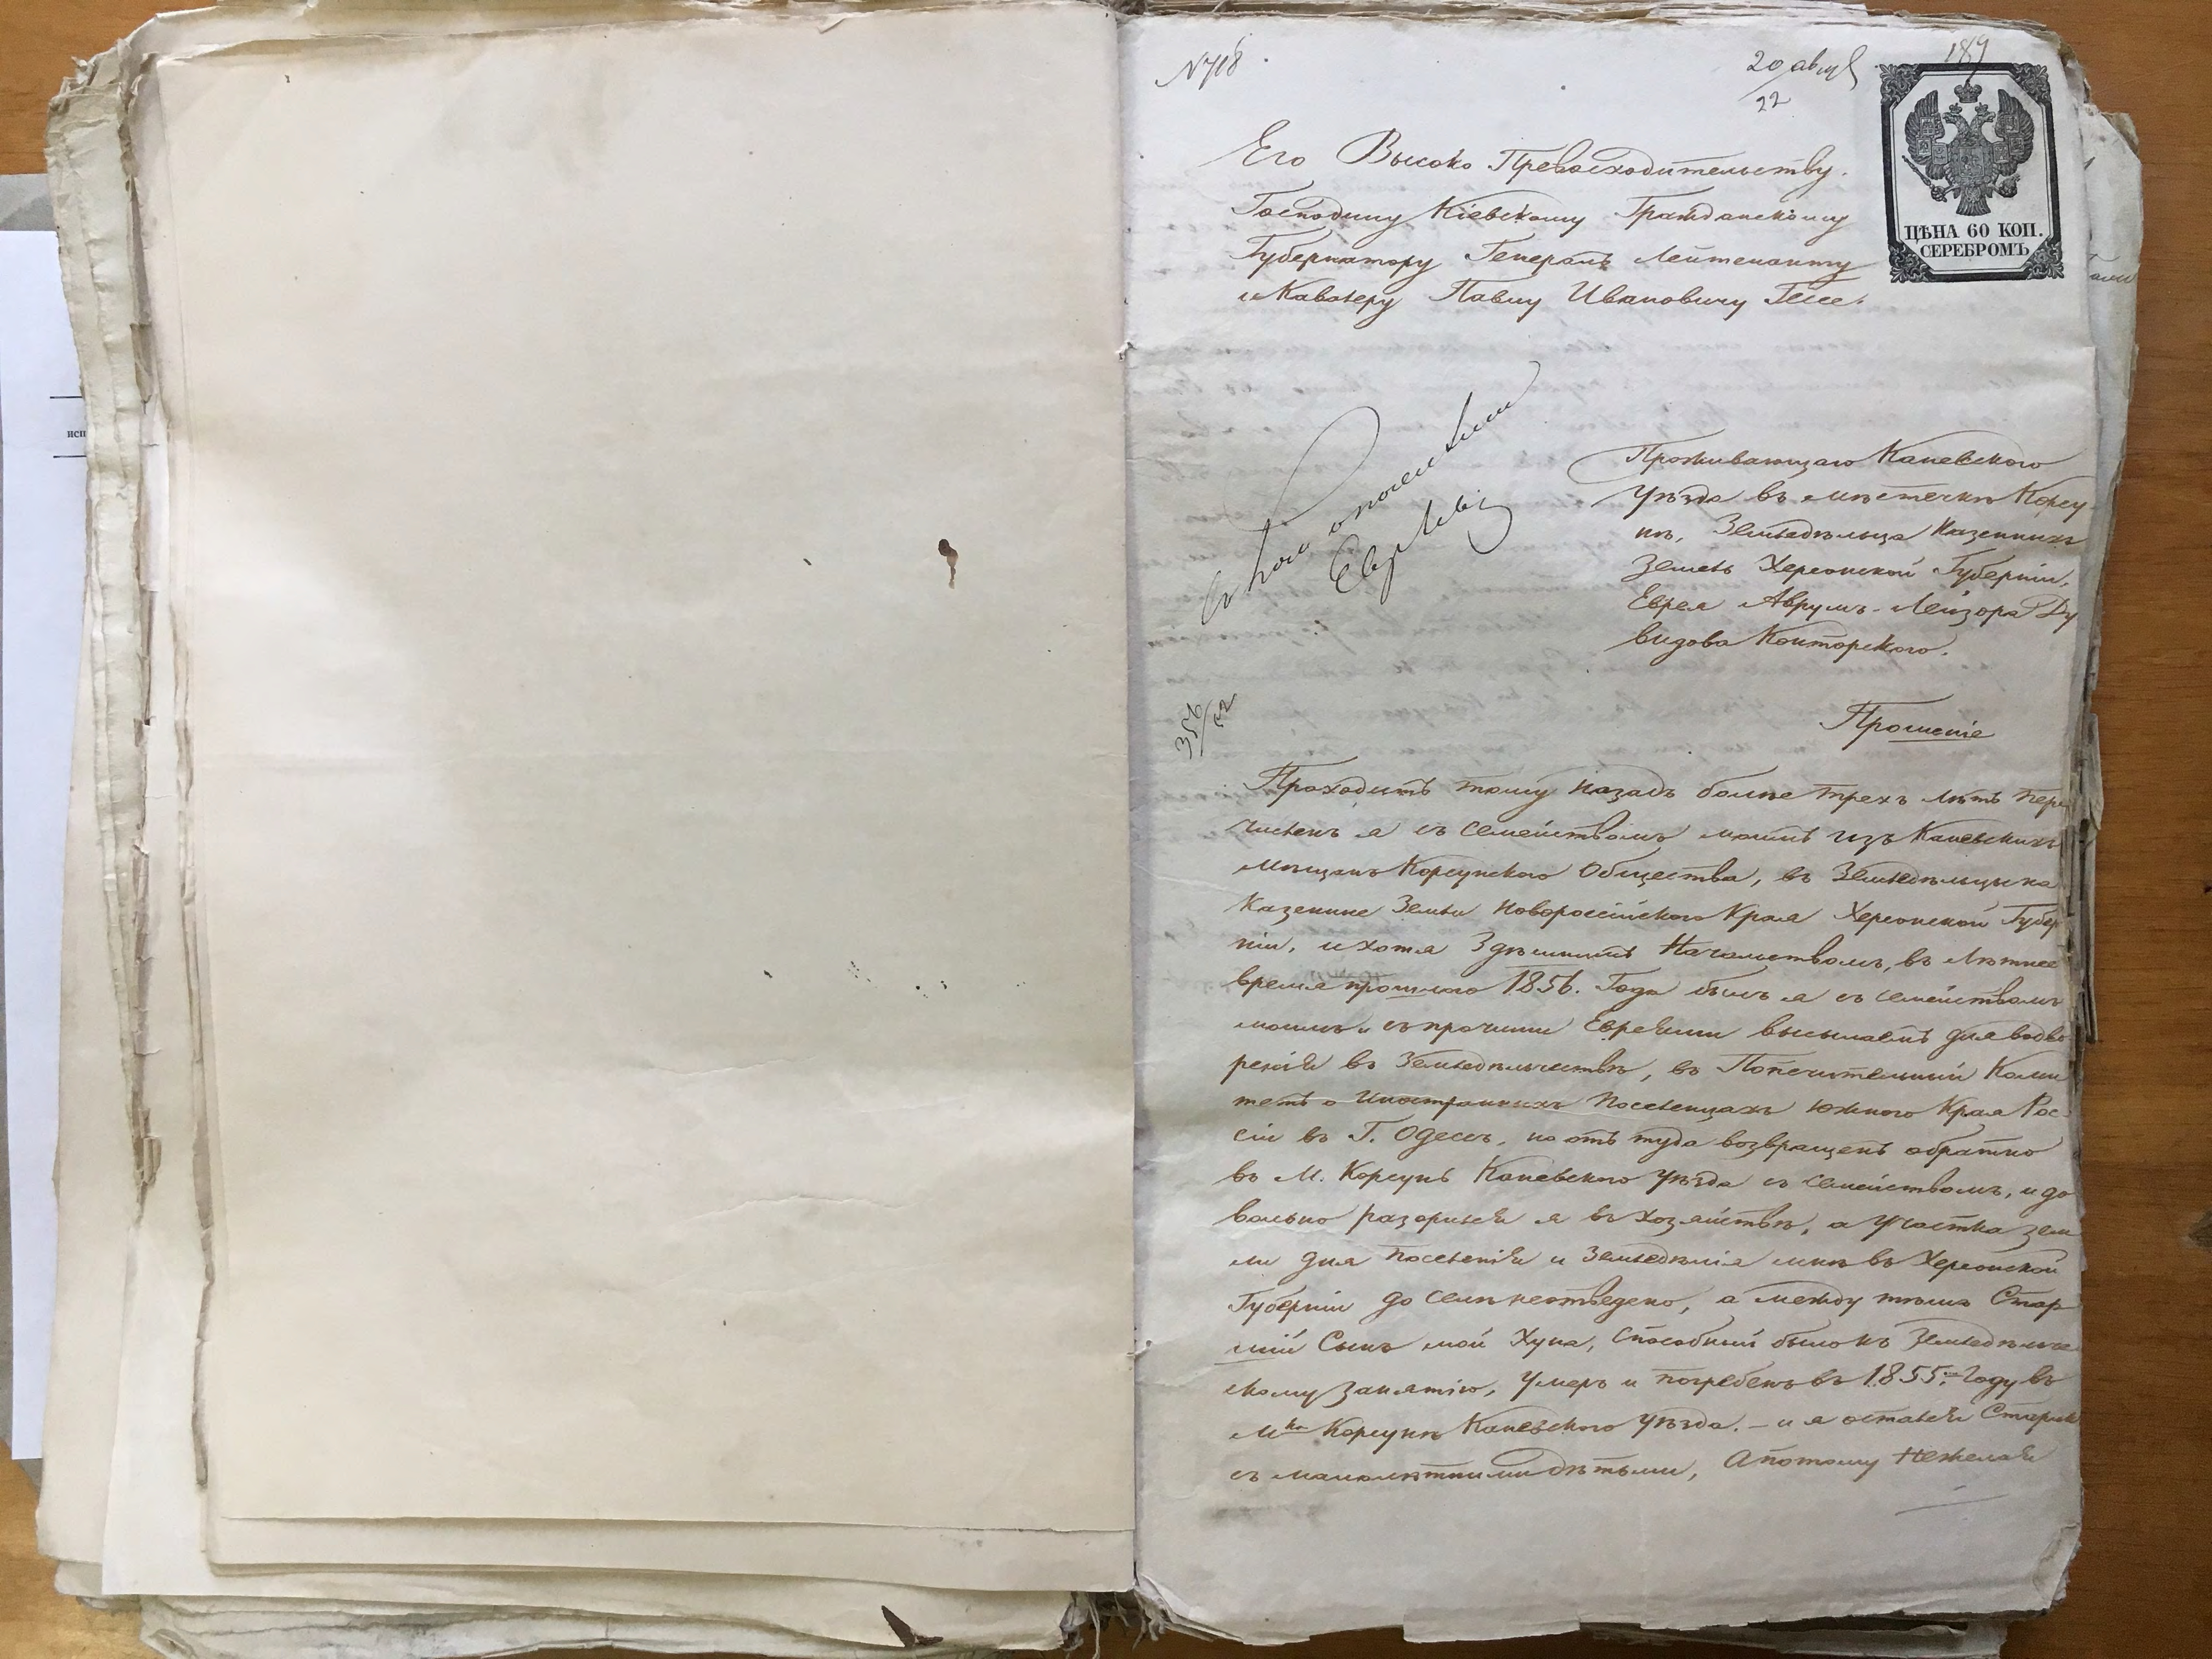 № 718
20 авгус
22
189
ЦѢНА 60 КОП.
СЕРЕБРОМЪ
Его Высоко Превосходительству.
Господину Кіевскому Гражданскому
Губернатору Генералъ Лейтенанту
и Кавалеру Павлу Ивановичу Гессе.
Проживающаго Каневского
уѣзда въ мѣстечкѣ Корсу
нѣ, Земледѣльца Казенныхъ
Земель Херсонской Губерніи,
Еврея Аврумъ-Лейзора Ду
видова Конторского.
Евреевъ
356/52
Прошеніе
Проходитъ тому назадъ более трехъ лѣтъ пере
численъ я съ семействомъ моимъ изъ Каневскихъ
мѣщанъ Корсунского Общества, въ Земледѣльцы на
Казенные Земли Новороссійского Края Херсонской Губер
ніи, и хотя Здѣшнимъ Начальствомъ, въ Лѣтнее
время прошлого 1856. Года былъ я съ семействомъ
моимъ и съ прочими Евреями высылаемъ для водво
ренія въ Земледѣльчествѣ, въ Попечительный Коми
тетъ о Иностранныхъ Поселенцахъ Южного Края Рос
сіи въ Г. Одессѣ, но отъ туда возвращенъ обратно
въ М. Корсунь Каневского Уѣзда съ семействомъ, и до
вольно разорился я въ хозяйствѣ, а участка зем
ли для поселенія и Земледѣлія мнѣ въ Херсонской
Губерніи до селѣ неотведено, а между тѣмъ Стар
шій Сынъ мой Хуна, Способный было къ Земледѣльче
скому занятію, умеръ и погребенъ въ 1855. Году въ
Мкѣ Корсунѣ Каневского Уѣзда. – и я остался Старикъ
съ малолѣтними дѣтьми, А потому Нежелая
исп